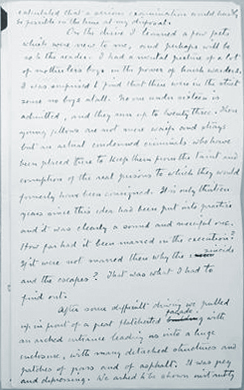 calculated that a serious examination would hardly
be possible in the time at my disposal.
On the drive I learned a few facts
which were new to me, and perhaps will be
so to the reader. I had a mental picture of a lot
of motherless boys in the power of harsh warders,
I was surprised to find that there were in the strict
sense no boys at all. No one under sixteen is
admitted, and they run up to twenty three. These
young fellows are not mere waifs and strays
but are actual condemned criminals who have
been placed there to keep them from the taint and
corruption of the real prisons to which they would
formerly have been consigned. It is only thirteen
years since this idea had been put into practice
and it was clearly a sound and merciful one.
How far had it been marred in the execution?
If it were not marred then why the suicide
and the escapes? That was what I had to
find out.
After some difficult driving we pulled
up in front of a great stuccoed facade with
an arched entrance leading us into a huge
enclosure, with many detached structures and
patches of grass and of asphalt. It was grey
and depressing. We asked to be shown instantly